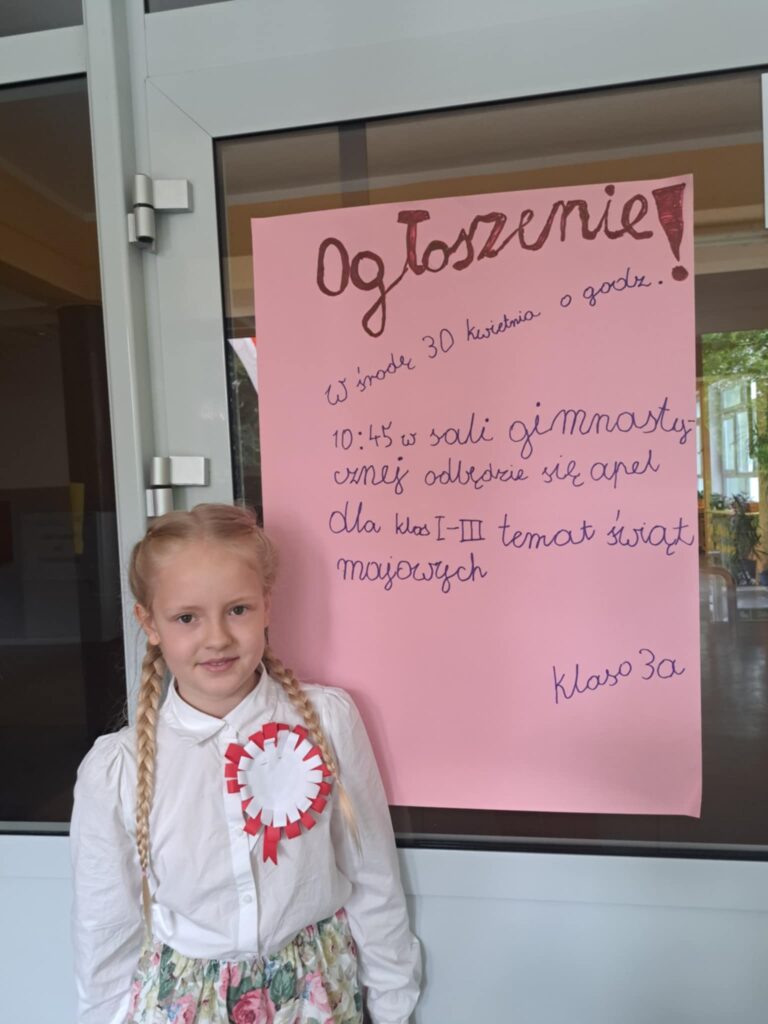 Ogłoszenie!
W środę 30 kwietnia o godz.
10:45 w sali gimnasty-
cznej odbędzie się apel
dla klas I-III temat świąt
majowych
klasa 3a